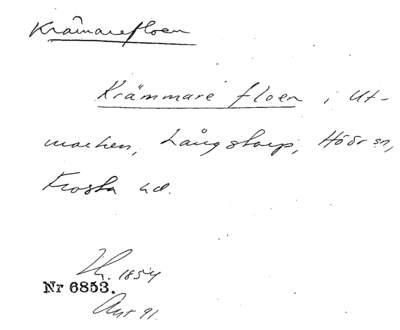 Krämarefloen
Krämmare floen i Ut-
marken, Långstorp, Höör sn,
Frosta hd.
1854
Nr 6853.
91.